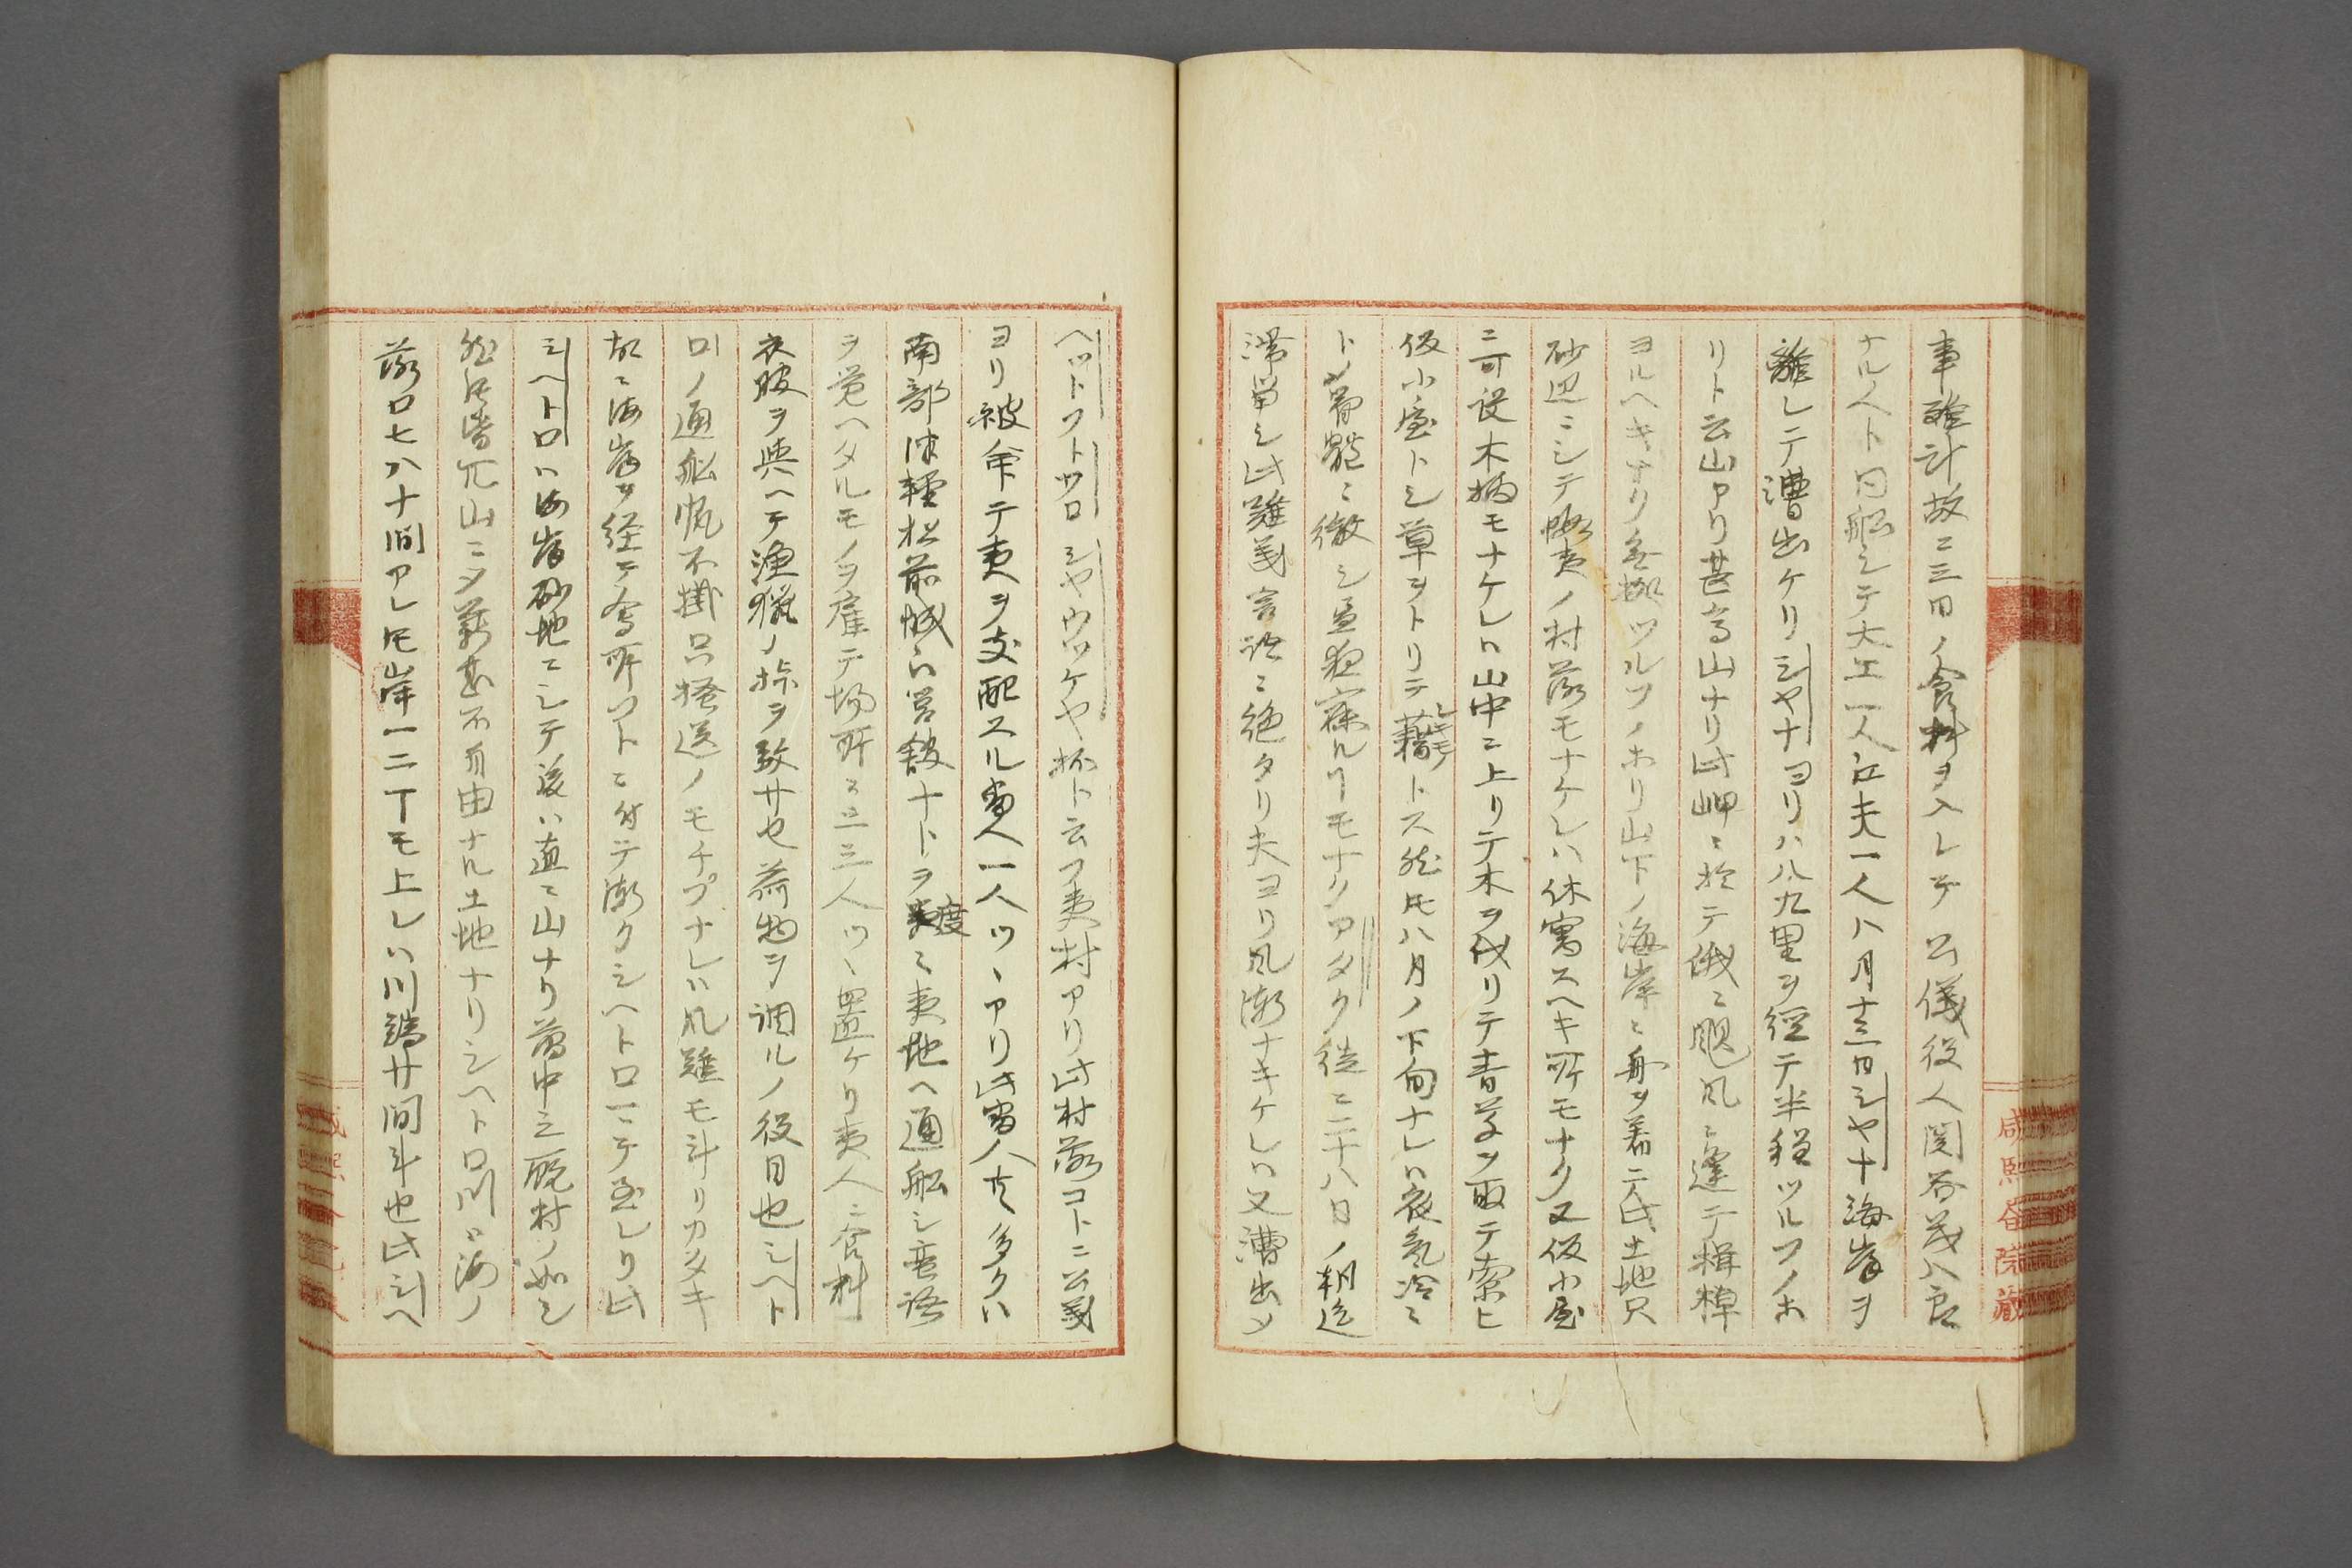 事難計故ニ三四ノ食料ヲ入レテ公儀役人関谷茂八良
ナル人ト同船シテ大工一人江夫一人八月十三日シヤナ海岸ヲ
離レテ漕出ケリシヤナヨリハ八九里ヲ経テ半程ツルフノホ
リト云山アリ甚高山ナリ此岬ニ於テ俄ニ颶風ニ逢テ楫棹
ヨルヘキナク無拠ツルフノホリ山下ノ海岸ニ舟ヲ着ニ此土地只
砂辺ニシテ夷ノ村落モナケレハ休寓スヘキ所モナク又仮小屋
ニ可設木柄モナケレハ山中ニ上リテ木ヲ伐リテ青草ヲ取テ索ヒ
仮小屋トシ草ヲトリテ藉トス然氏八月ノ下旬ナレハ夜気冷ニ
トメ骨髄ニ徹シ昼夜寐ルヿモナクアタク徒ニ二十八日ノ朝迄
滞留シ此難義言語ニ絶タリ夫ヨリ風漸ナキケレハ又漕出メ
ヘットフトツロシヤウツケヤ抔ト云フ夷村アリ此村落コトニ公義
ヨリ被命テ夷ヲ支配スル番人一人ツヽアリ此番人共多クハ
南部津軽松前城ハ箱舘ナトヨリ度々夷地ヘ通船シ蛮語
ヲ覚ヘタルモノヲ雇テ場所ニ二三人ツヽ置ケリ夷人ニ食料
衣服ヲ与ヘテ漁猟ノ捗ヲ致サセ荷物ヲ調ルノ役目也シヘト
ロノ通船帆不掛只掻送ノモチプナレハ風難モ斗リカタキ
故ニ海岸ヲ経テ所ソトニ付テ漸クシヘトロニテ至レリ此
シヘトロハ海岸砂地ニシテ後ハ直ニ山ナリ島中之廐村ノ如シ
然氏皆兀山ニメ薪甚不自由ナル土地ナリシヘトロ川ハ海ノ
落口七八十間アレ氏岸一二丁モ上レハ川端廿間斗也此シヘ
咸煕舎院蔵